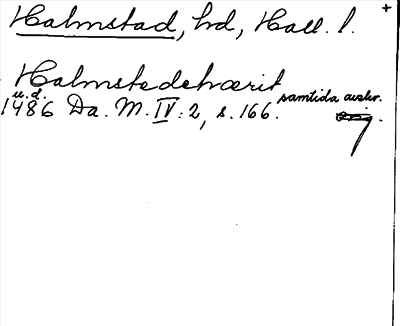 Halmstad, hd, Hall. l. +
Halmstedehærit
u.d. samtida avskr.
1486 Da. M. IV: 2, s. 166. orig